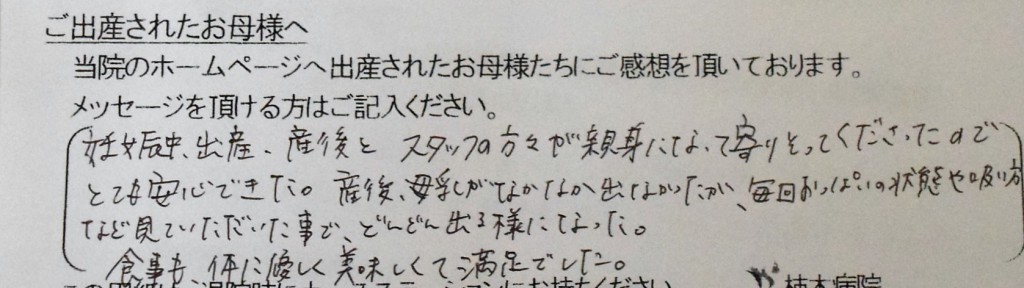 ご出産されたお母様へ
当院のホームページへ出産されたお母様たちにご感想を頂いております。
メッセージを頂ける方はご記入ください。
妊娠中、出産、産後と スタッフの方々が親身になって寄りそってくださったので
とても安心できた。産後、母乳がなかなか出なかったが、毎回おっぱいの状態や吸い方
など見ていただいた事で、どんどん出る様になった。
食事も、体に優しく美味しくて満足でした。
柿木病院